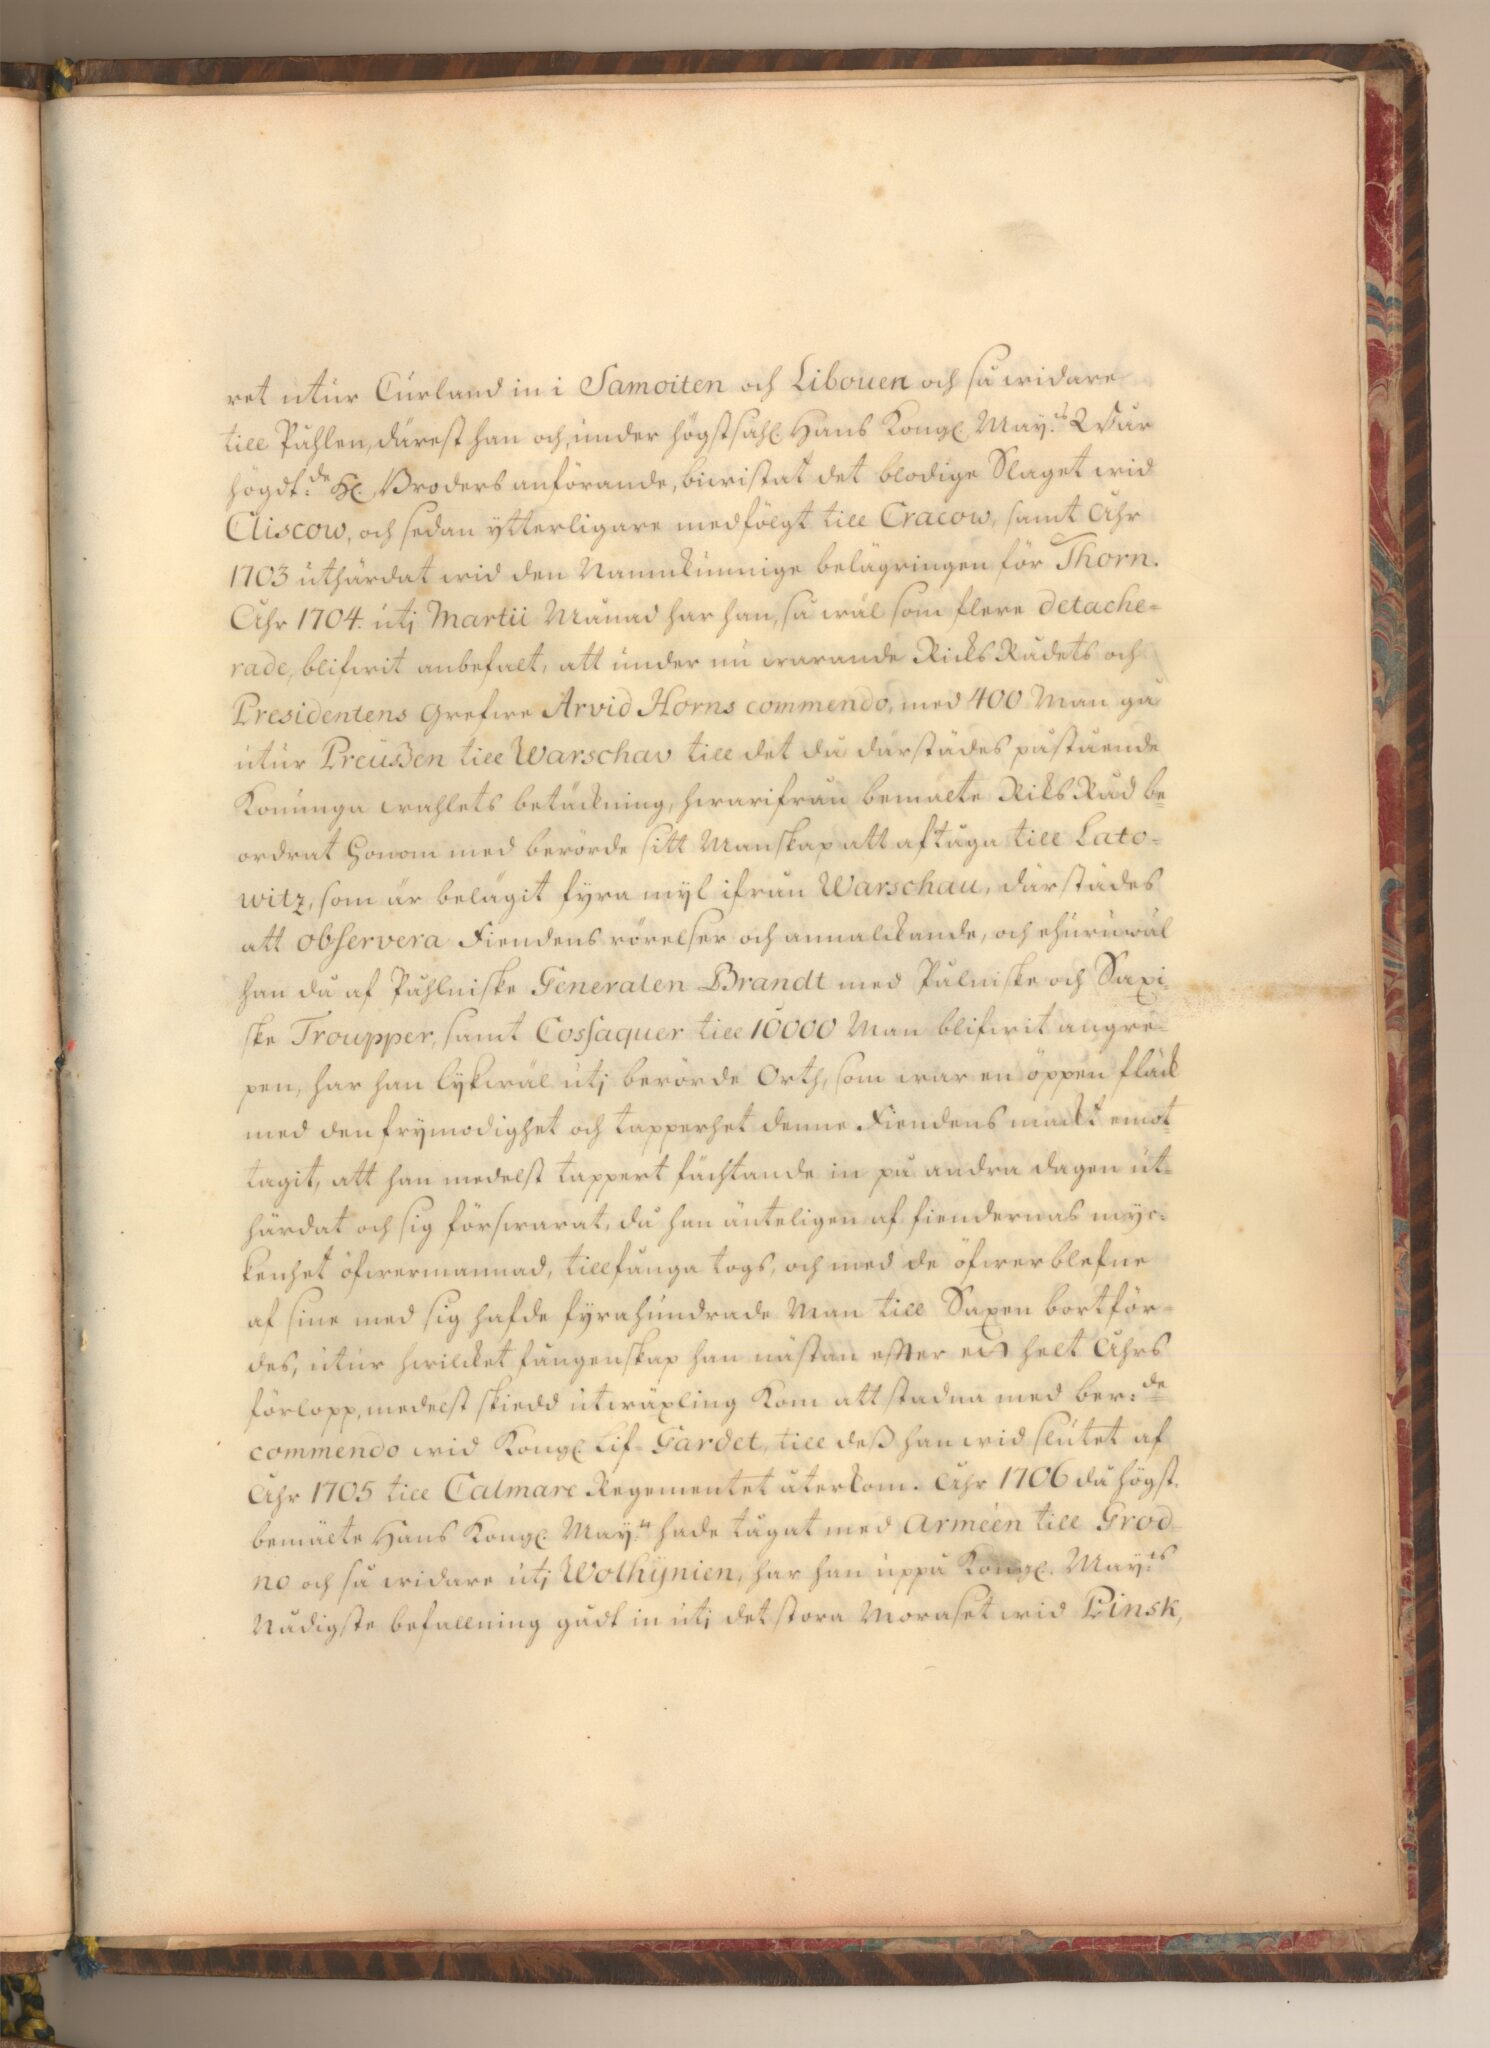 ret utur Curland in i Samoiten och Libouen och så widare
till Påhlen, därest han och, under högstsahl. Hans Kongl. May:ts Wår
högdt:de H. Broders anförande, biwistat det blodige Slaget wid
Cliscow, och sedan ytterligare medfölgt till Cracow, samt Åhr
1703 uthärdat wid den Namnkunnige belägringen för Thorn.
Åhr 1704. utj Martii Månad har han, så wäl som flere detache-
rade, blifwit anbefalt, att under nu warande Ricks Rådets och
Presidentens Grefwe Arvid Horns commendo, med 400 Man gå
utur Preussen till Warschav till det då därstädes påstående
Konunga wahlets betäckning, hwarifrån bemälte Riks Råd be-
ordrat Honom med berörde sitt Manskap att aftåga till Lato-
witz, som är belägit fyra myl ifrån Warschau, därstädes
att observera Fiendens rörelser och annalckande, och ehuruwäl
han då af Påhlniske Generalen Brandt med Pålniske och Saxi-
ske Troupper, samt Cossaquer till 10000 Man blifwit angre-
pen, har han lykwäl utj berörde Orth, som war en öppen fläck
med den frymodighet och tapperhet denne Fiendens mackt emot-
tagit, att han medelst tappert fächtande in på andra dagen ut-
härdat och sig förswarat, då han änteligen af fiendernas myc-
kenhet öfwermannad, tillfånga togs, och med de öfwerblefne
af sine med sig hafde fyrahundrade Man till Saxen bortför-
des, utur hwilcket fångenskap han nästan efter ett helt Åhrs
förlopp, medelst skiedd utwäxling kom att stadna med ber:de
commendo wid Kongl. Lif-Gardet, till dess han wid slutet af
Åhr 1705 till Calmare Regementet återkom. Åhr 1706 då högst-
bemälte Hans Kongl. May:tt hade tågat med Arméen till Grod-
no och så widare utj Wolhynien, har han uppå Kongl. May:ts
Nådigste befallning gådt in utj det stora Moraset wid Pinsk,